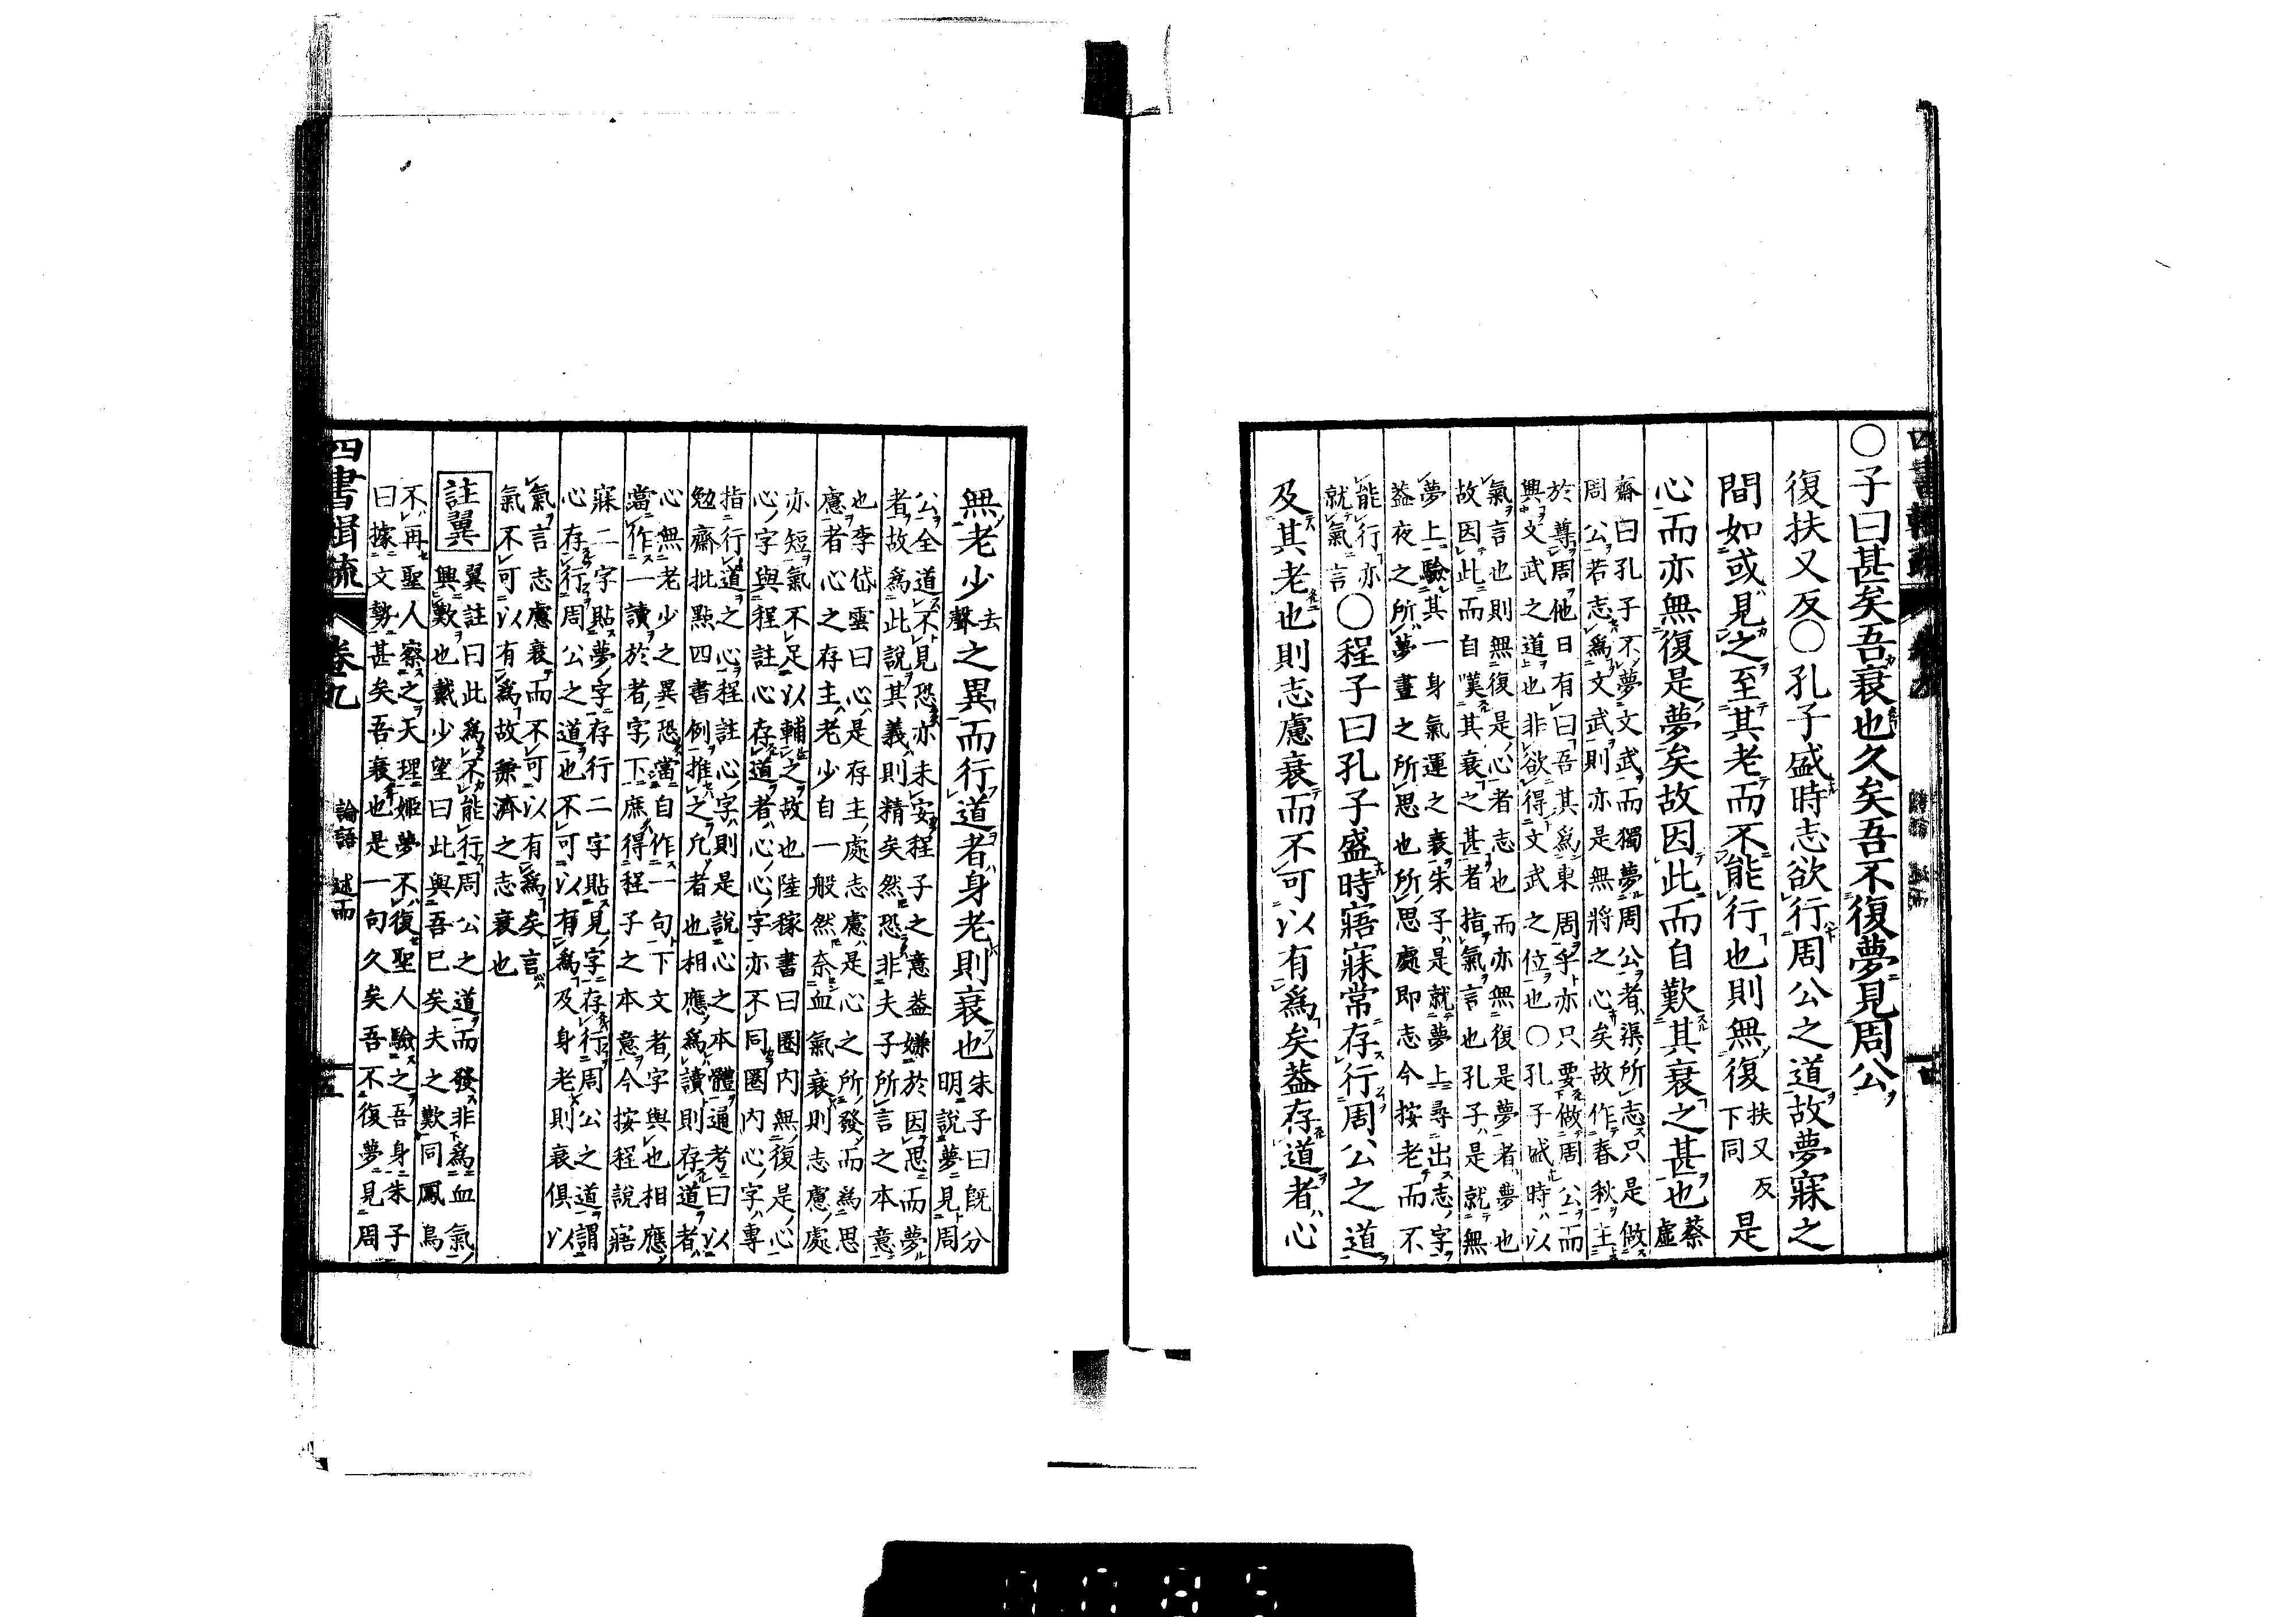 ○子曰甚矣吾衰也久矣吾不復夢見周公
復扶又反○孔子盛時志欲行周公之道故夢寐之
間如或見之至其老而不能行也則無復扶又反下同是
心而亦無復是夢矣故因此而自歎其衰之甚也蔡虛
齋曰孔子不夢文武而獨夢周公者渠所志只是做
周公若志爲文武則亦是無將之心矣故作春秋主
於尊周他日有曰吾其爲東周乎亦只要做周公而
興文武之道也非欲得文武之位也○孔子盛時以
氣言也則無復是心者志也而亦無復是夢者夢也
故因此而自嘆其衰之甚者指氣言也孔子是就無
夢上驗其一身氣運之衰朱子是就夢上尋出志字
蓋夜之所夢晝之所思也所思處即志今按老而不
能行亦
就氣言○程子曰孔子盛時寤寐常存行周公之道
及其老也則志慮衰而不可以有爲矣蓋存道者心
無老少去聲之異而行道者身老則衰也朱子曰既分明說夢見周
公全道不見恐亦未安程子之意蓋嫌於因思而夢
者故爲此說其義則精矣然恐非夫子所言之本意
也李岱雲曰心是存主處志慮是心之所發而爲思
慮者心之存主老少自一般然奈血氣衰則志慮處
亦短氣不足以輔之故也陸稼書曰圈内無復是心
心字與程註心存道者心心字亦不同圈内心字專
指行道之心程註心字則是說心之本體通考曰以
勉齋批點四書例推之凡者也相應爲讀則存道者
心無老少之異恐當自作一句下文者字與也相應
當作一讀於者字下庶得程子之本意今按程說寤
寐二字貼夢字存行二字貼見字存行周公之道謂
心存行周公之道也不可以有爲及身老則衰俱以
氣言志慮衰而不可以有爲矣言
氣不可以有爲故兼濟之志衰也
註翼 翼註曰此爲不能行周公之道而發非爲血氣
興歎也戴少望曰此與吾已矣夫之歎同鳳鳥
不再聖人察之天理姬夢不復聖人驗之吾身朱子
曰據文勢甚矣吾衰也是一句久矣吾不復夢見周
四書輯疏 卷九 論語 述而 五